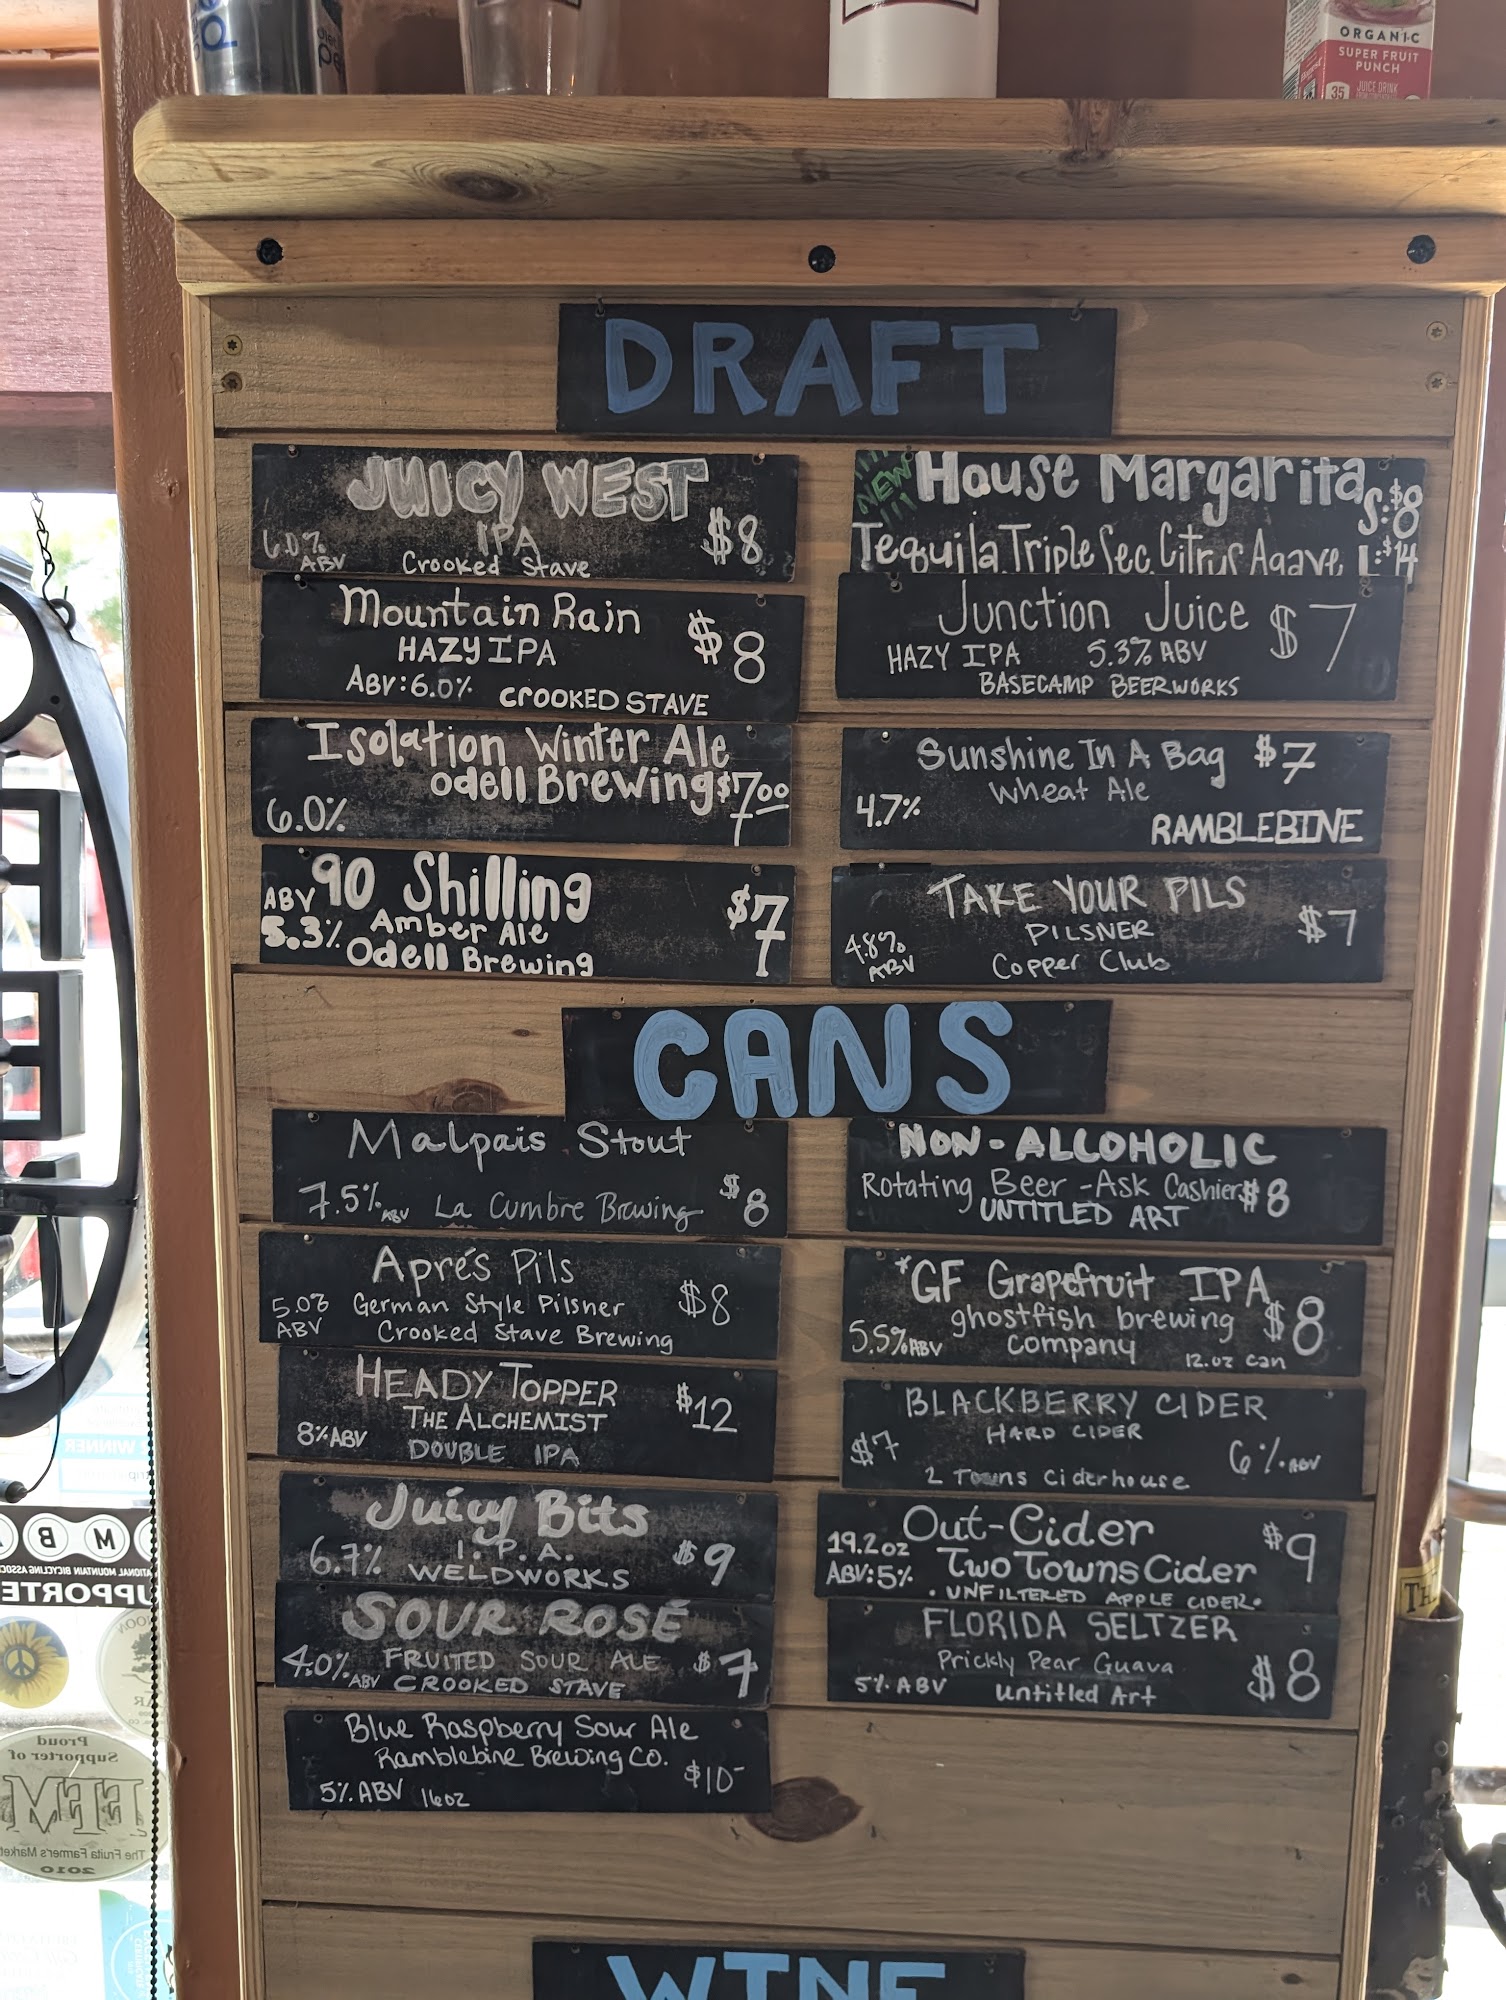 ORGANIC
SUPER FRUIT
PUNCH
35
JUICE DRINK
DRAFT
JUICY WEST
IPA
6.0%
ABV
Crooked Stave
$8
Mountain Rain
HAZY IPA
$8
ABV: 6.0% CROOKED STAVE
Isolation Winter Ale
Odell Brewing $7.00
6.0%
ABV 90 Shilling
5.3% Amber Ale
Odell Brewing
$7
NEW!!!
House Margarita S:$8
Tequila, Triple Sec, Citrus, Agave, L:$14
Junction Juice $7
HAZY IPA 5.3% ABV
BASECAMP BEERWORKS
Sunshine In A Bag $7
Wheat Ale
4.7%
RAMBLEBINE
TAKE YOUR PILS
PILSNER
$7
4.8%
ABV
Copper Club
CANS
Malpais Stout
7.5% ABV La Cumbre Brewing $8
Aprés Pils
5.0%
ABV
German Style Pilsner
Crooked Stave Brewing
$8
HEADY TOPPER
THE ALCHEMIST
8% ABV DOUBLE IPA
$12
Juicy Bits
I.P.A.
6.7% WELDWORKS
$9
SOUR ROSÉ
4.0% ABV FRUITED SOUR ALE
CROOKED STAVE
$7
Blue Raspberry Sour Ale
Ramblebine Brewing Co.
5% ABV 16oz
$10-
NON-ALCOHOLIC
Rotating Beer - Ask Cashier $8
UNTITLED ART
*GF Grapefruit IPA
ghostfish brewing
company
5.5% ABV
$8
12.oz can
BLACKBERRY CIDER
HARD CIDER
$7
2 Towns Ciderhouse
6% ABV
Out-Cider
19.2oz
Two Towns Cider
ABV: 5%
$9
. UNFILTERED APPLE CIDER.
FLORIDA SELTZER
Prickly Pear Guava
5% ABV untitled Art
$8
WINE
Proud
Supporter of
FFM
The Fruita Farmer's Market
2010